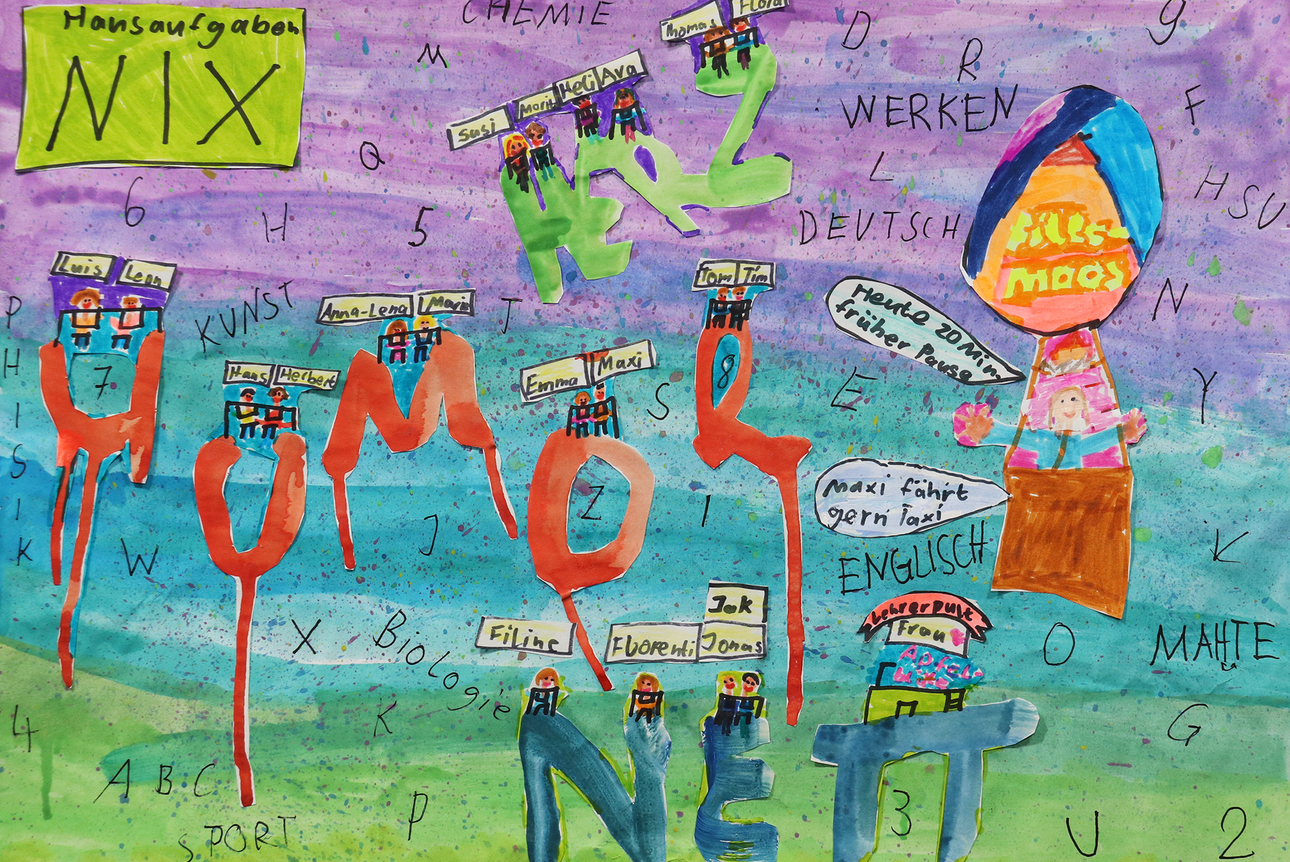 Hausaufgaben
NIX
CHEMIE
M
Q
6
H
5
Thomas
Flora
Susi
Moritz
HeGi
Ava
HERZ
D
R
9
WERKEN
F
L
HSU
DEUTSCH
N
Filles-
maas
Heute 20 Min
früher Pause
Luis
Leon
KUNST
Anna-Lena
Marie
J
Tom
Tim
PHISIK
7
Hans
Herbert
Emma
Maxi
S
8
E
Y
HUMOR
Z
I
J
W
Maxi fährt
gern Taxi
ENGLISCH
K
X
Biologie
Filine
Florenti
Jak
Jonas
Lehrerpult
Frau
Apfel
O
MAHTE
4
K
G
ABC
NETT
3
SPORT
P
U
2